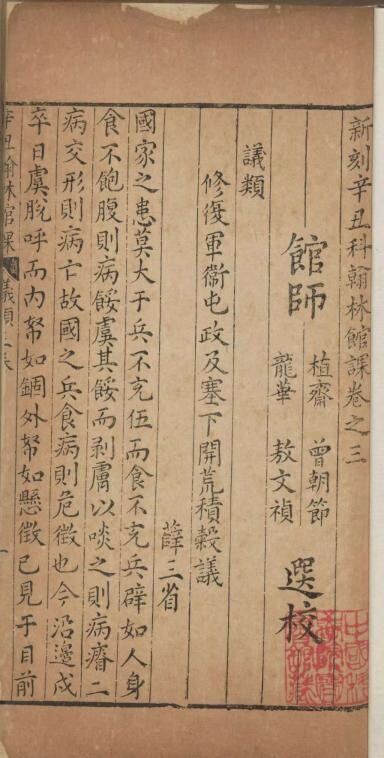 新刻辛丑科翰林館課卷之三
館師 植齋 曾朝節
龍華 敖文禎 選校
議類
修復軍衞屯政及塞下開荒積穀議
薛三省
國家之患莫大于兵不充伍而食不充兵辟如人身
食不飽腹則病餒虞其餒而剥膚以啖之則病瘠二
病交形則病亡故國之兵食病則危徵也今沿邊戍
卒日虞脫呼而内帑如錮外帑如懸徵已見于目前
辛丑翰林館課 議類